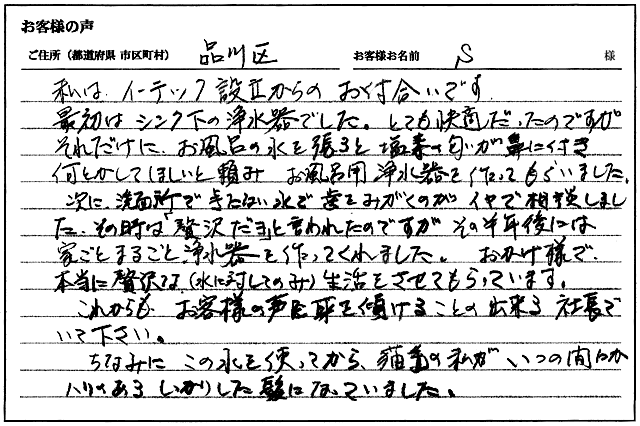 お客様の声
ご住所（都道府県 市区町村） 品川区 お客様お名前 S 様
私は、イーテック設立からの おく寸合いです
最初は シンク下の浄水器でした。とても快適だったのですが
それだけに、お風呂の水を張ると塩素の匂いが鼻に付き
何とかしてほしいと頼み お風呂用浄水器を作ってもらいました。
次に 洗面所で きたない水で 歯をみがくのがイヤで相談しまし
た。その時は「贅沢だョ」と言われたのですが その半年後には
家ごと まるごと浄水器を作ってくれました。 おかげ様で、
本当に贅沢な（水に対してのみ）生活をさせてもらっています。
これからも お客様の声に耳を傾けることの出来る 社長で
いて下さい。
ちなみに この水を使ってから、猫毛の私が いつの間にか
ハリのある しっかりした髪になっていました。